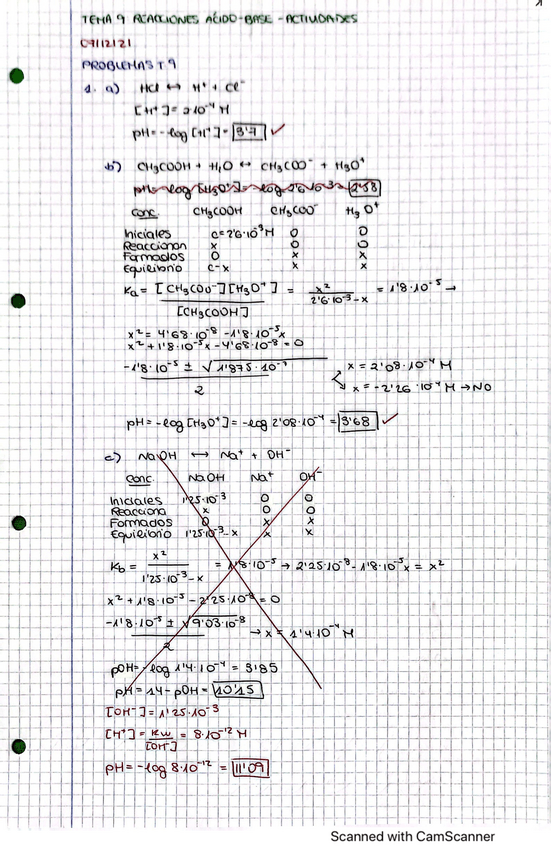 TEMA 9 REACCIONES ÁCIDO-BASE - ACTIVIDADES
09/12/21
PROBLEMAS T.9
1. a) HCl ↔ H⁺ + Cl⁻
[H⁺] = 2·10⁻⁴ M
pH = -log [H⁺] = 3'7 ✓
b) CH₃COOH + H₂O ↔ CH₃COO⁻ + H₃O⁺
pH = -log [H₃O⁺] = -log 2'6·10⁻³ = 2'58
Conc. CH₃COOH CH₃COO⁻ H₃O⁺
Iniciales c=2'6·10⁻³M 0 0
Reaccionan x 0 0
Formados 0 x x
Equilibrio c-x x x
Ka = [CH₃COO⁻][H₃O⁺] / [CH₃COOH] = x² / 2'6·10⁻³-x = 1'8·10⁻⁵ →
x² = 4'68·10⁻⁸ - 1'8·10⁻⁵x
x² + 1'8·10⁻⁵x - 4'68·10⁻⁸ = 0
-1'8·10⁻⁵ ± √1'875·10⁻⁷ / 2
x = 2'08·10⁻⁴ M
x = -2'26·10⁻⁴ M → NO
pH = -log [H₃O⁺] = -log 2'08·10⁻⁴ = 3'68 ✓
c) NaOH ↔ Na⁺ + OH⁻
Conc. NaOH Na⁺ OH⁻
Iniciales 1'25·10⁻³ 0 0
Reacciona x 0 0
Formados 0 x x
Equilibrio 1'25·10⁻³-x x x
Kb = x² / 1'25·10⁻³-x = 1'8·10⁻⁵ → 2'25·10⁻⁸ - 1'8·10⁻⁵x = x²
x² + 1'8·10⁻⁵ - 2'25·10⁻⁸ = 0
-1'8·10⁻⁵ ± √9'03·10⁻⁸ / 2 → x = 1'4·10⁻⁴ M
pOH = -log 1'4·10⁻⁴ = 3'85
pH = 14 - pOH = 10'15
[OH⁻] = 1'25·10⁻³
[H⁺] = Kw / [OH⁻] = 8·10⁻¹² M
pH = -log 8·10⁻¹² = 11'09
Scanned with CamScanner